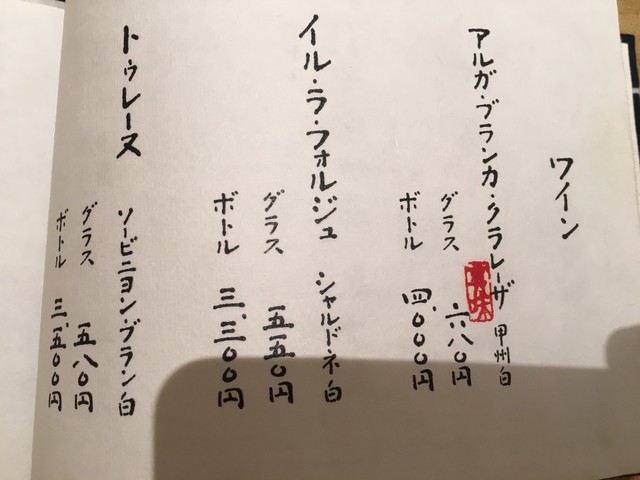 ワイン
アルガ・ブランカ・クラレーザ 甲州白
グラス 六八〇円
ボトル 四、〇〇〇円
イル・ラ・フォルジュ シャルドネ白
グラス 五五〇円
ボトル 三、三〇〇円
トゥレーヌ ソービニヨン・ブラン白
グラス 五八〇円
ボトル 三、五〇〇円